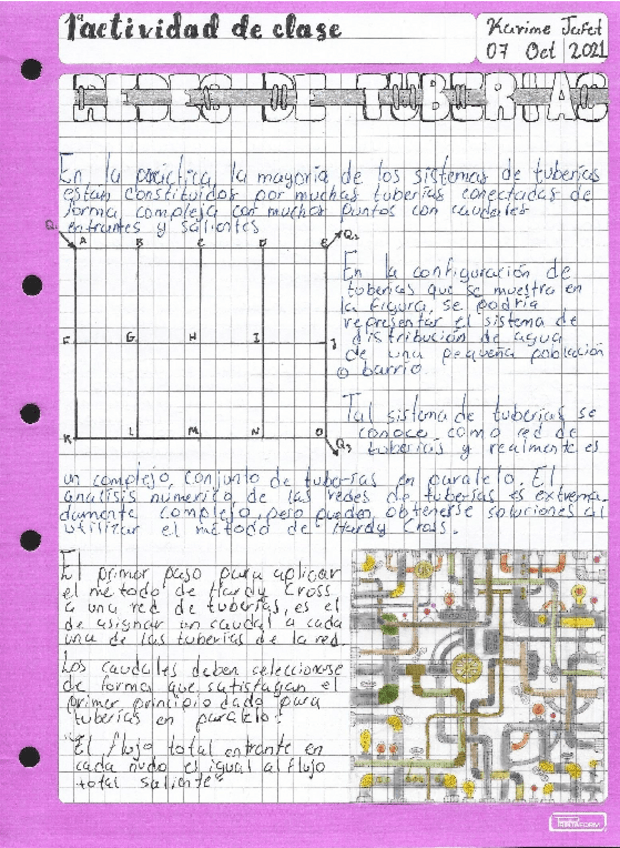 1ª actividad de clase
Karime Jafet
07 Oct 2021
REDES DE TUBERÍAS
En la práctica, la mayoria de los sistemas de tuberías
están constituidos por muchas tuberías conectadas de
forma compleja con muchos puntos con caudales
entrantes y salientes
Q1
A B C D E Q2
En la configuración de
tuberías que se muestra en
la figura, se podría
representar el sistema de
F G H I J
distribución de agua
de una pequeña población
o barrio.
Tal sistema de tuberías se
conoce como red de
K L M N O Q3
tuberías y realmente es
un complejo conjunto de tuberías en paralelo. El
análisis numérico de las redes de tuberías es extrema-
damente complejo, pero pueden obtenerse soluciones al
utilizar el método de Hardy Cross.
El primer paso para aplicar
el método de Hardy Cross
a una red de tuberías, es el
de asignar un caudal a cada
una de las tuberías de la red.
Los caudales deben seleccionarse
de forma que satisfagan el
primer principio dado para
tuberías en paralelo:
"El flujo total entrante en
cada nudo es igual al flujo
total saliente"